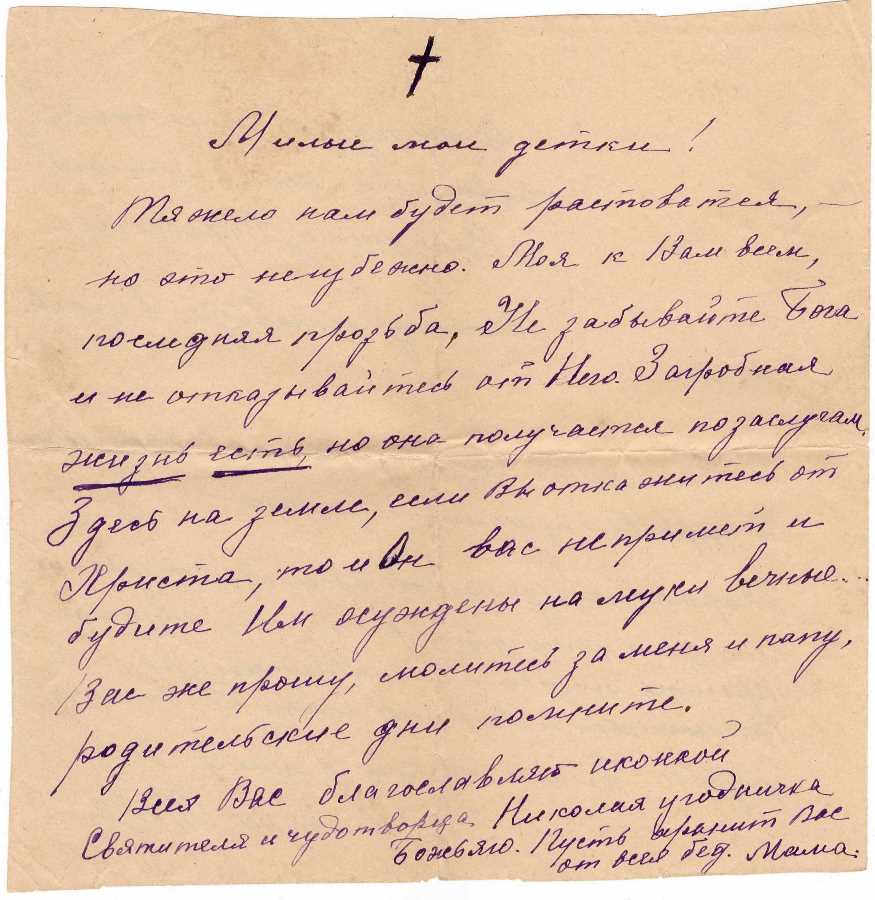 Милые мои детки!
Тяжело нам будет растоватся, –
но это неизбежно. Моя к Вам всем,
последняя прозьба, Не забывайте Бога
и не отказывайтесь от Него. Загробная
жизнь есть, но она получается по заслугам.
Здесь на земле, если Вы откажитесь от
Христа, то и Он вас не примет и
будите Им осуждены на муки вечные...
Вас же прошу, молитесь за меня и папу,
родительские дни помните.
Всех Вас благославляю иконкой
Святителя и чудотворца Николая угодничка
Божьяго. Пусть хранит Вас
от всех бед. Мама.